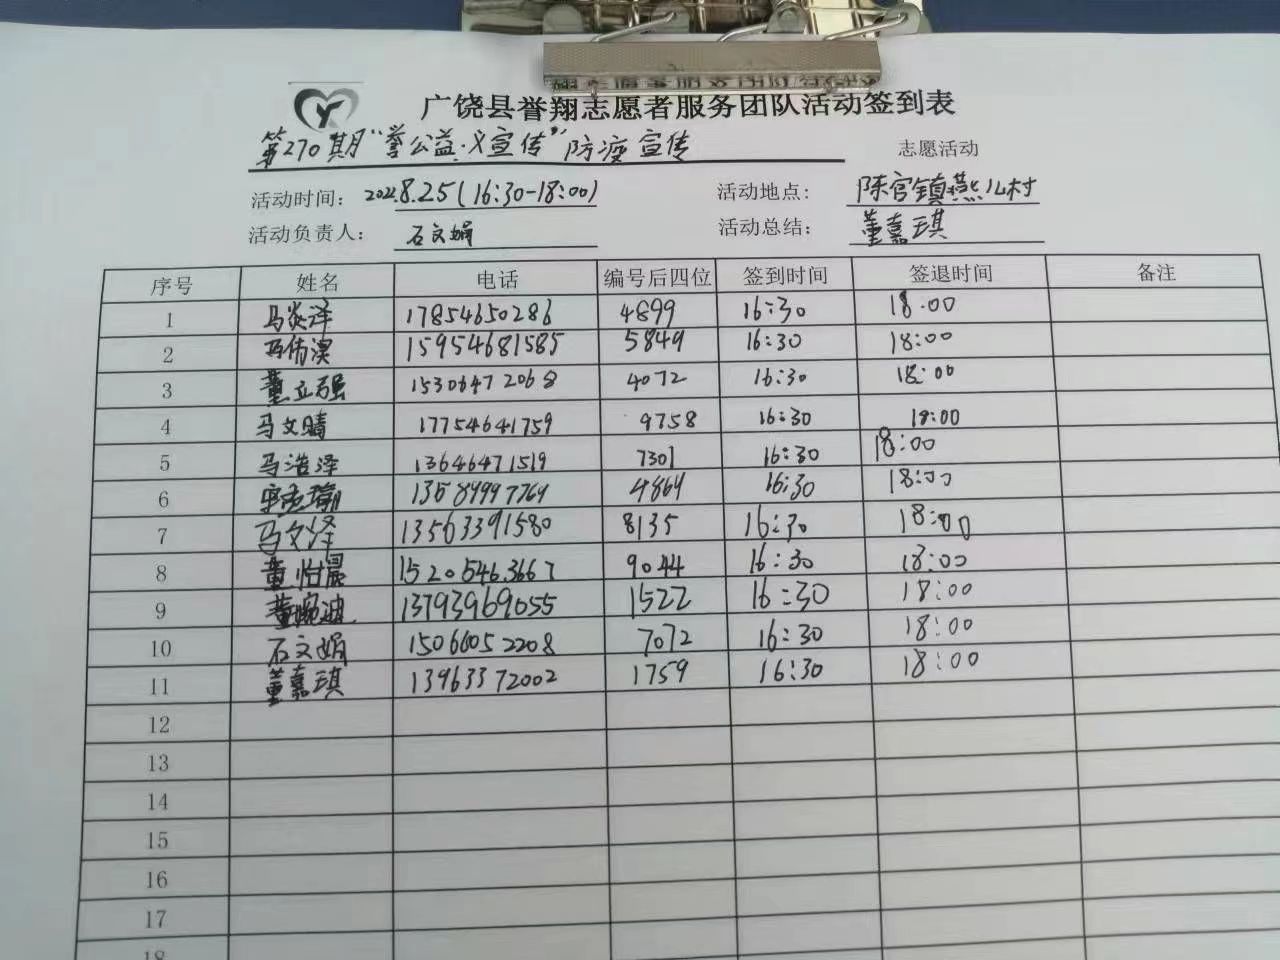 广饶县誉翔志愿者服务团队活动签到表
第270期"誉公益·义宣传"防疫宣传 志愿活动
活动时间: 2022.8.25(16:30-18:00) 活动地点: 陈官镇燕儿村
活动负责人: 石文娟 活动总结: 董嘉琪
序号 姓名 电话 编号后四位 签到时间 签退时间 备注
1 马炎泽 17854650286 4899 16:30 18:00
2 15954681585 5849 16:30 18:00
3 董立强 15306472068 4072 16:30 18:00
4 马文晴 17754641759 9758 16:30 18:00
5 马浩泽 13646471519 7301 16:30 18:00
6 13589997769 4869 16:30 18:00
7 马文泽 13563391580 8135 16:30 18:00
8 董怡晨 15205463667 9044 16:30 18:00
9 董婉迪 13793969055 1522 16:30 18:00
10 石文娟 15066052208 7072 16:30 18:00
11 董嘉琪 13963372002 1759 16:30 18:00
12
13
14
15
16
17
18